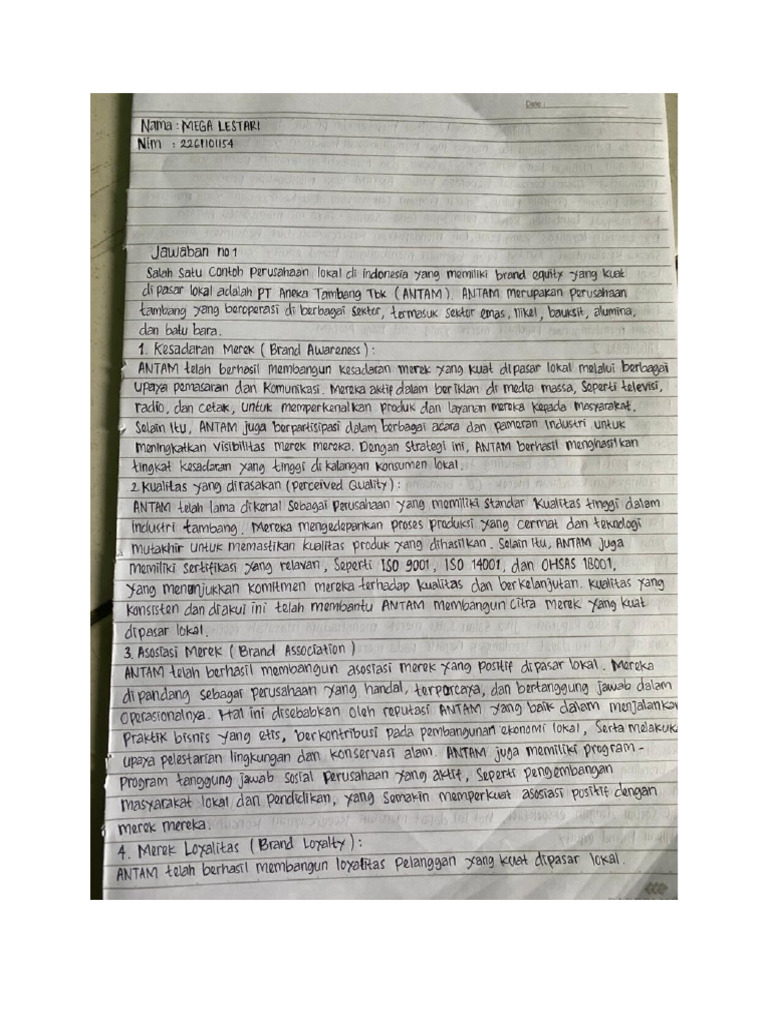 Date :
Nama : MEGA LESTARI
Nim : 2261101154
Jawaban no 1
Salah satu contoh perusahaan lokal di indonesia yang memiliki brand equity yang kuat
di pasar lokal adalah PT Aneka Tambang Tbk (ANTAM). ANTAM merupakan perusahaan
tambang yang beroperasi di berbagai sektor, termasuk sektor emas, nikel, bauksit, alumina,
dan batu bara.
1. Kesadaran Merek ( Brand Awareness ) :
ANTAM telah berhasil membangun kesadaran merek yang kuat dipasar lokal melalui berbagai
upaya pemasaran dan komunikasi. Mereka aktif dalam beriklan di media massa, seperti televisi,
radio, dan cetak, untuk memperkenalkan produk dan layanan mereka kepada masyarakat.
Selain itu, ANTAM juga berpartisipasi dalam berbagai acara dan pameran industri untuk
meningkatkan visibilitas merek mereka. Dengan strategi ini, ANTAM berhasil menghasilkan
tingkat kesadaran yang tinggi di kalangan konsumen lokal.
2. Kualitas yang dirasakan (perceived Quality) :
ANTAM telah lama dikenal sebagai perusahaan yang memiliki standar kualitas tinggi dalam
industri tambang. Mereka mengedepankan proses produksi yang cermat dan teknologi
mutakhir untuk memastikan kualitas produk yang dihasilkan. Selain itu, ANTAM juga
memiliki sertifikasi yang relavan, seperti ISO 9001, ISO 14001, dan OHSAS 18001,
yang menunjukkan komitmen mereka terhadap kualitas dan berkelanjutan. kualitas yang
konsisten dan diakui ini telah membantu ANTAM membangun citra merek yang kuat
dipasar lokal.
3. Asosiasi Merek ( Brand Association )
ANTAM telah berhasil membangun asosiasi merek yang positif dipasar lokal. Mereka
dipandang sebagai perusahaan yang handal, terpercaya, dan bertanggung jawab dalam
operasionalnya. Hal ini disebabkan oleh reputasi ANTAM yang baik dalam menjalankan
praktik bisnis yang etis, berkontribusi pada pembangunan ekonomi lokal, serta melakuk
upaya pelestarian lingkungan dan konservasi alam. ANTAM juga memiliki program-
program tanggung jawab sosial perusahaan yang aktif, seperti pengembangan
masyarakat lokal dan pendidikan, yang semakin memperkuat asosiasi positif dengan
merek mereka.
4. Merek Loyalitas ( Brand Loyalty ) :
ANTAM telah berhasil membangun loyalitas pelanggan yang kuat dipasar lokal.